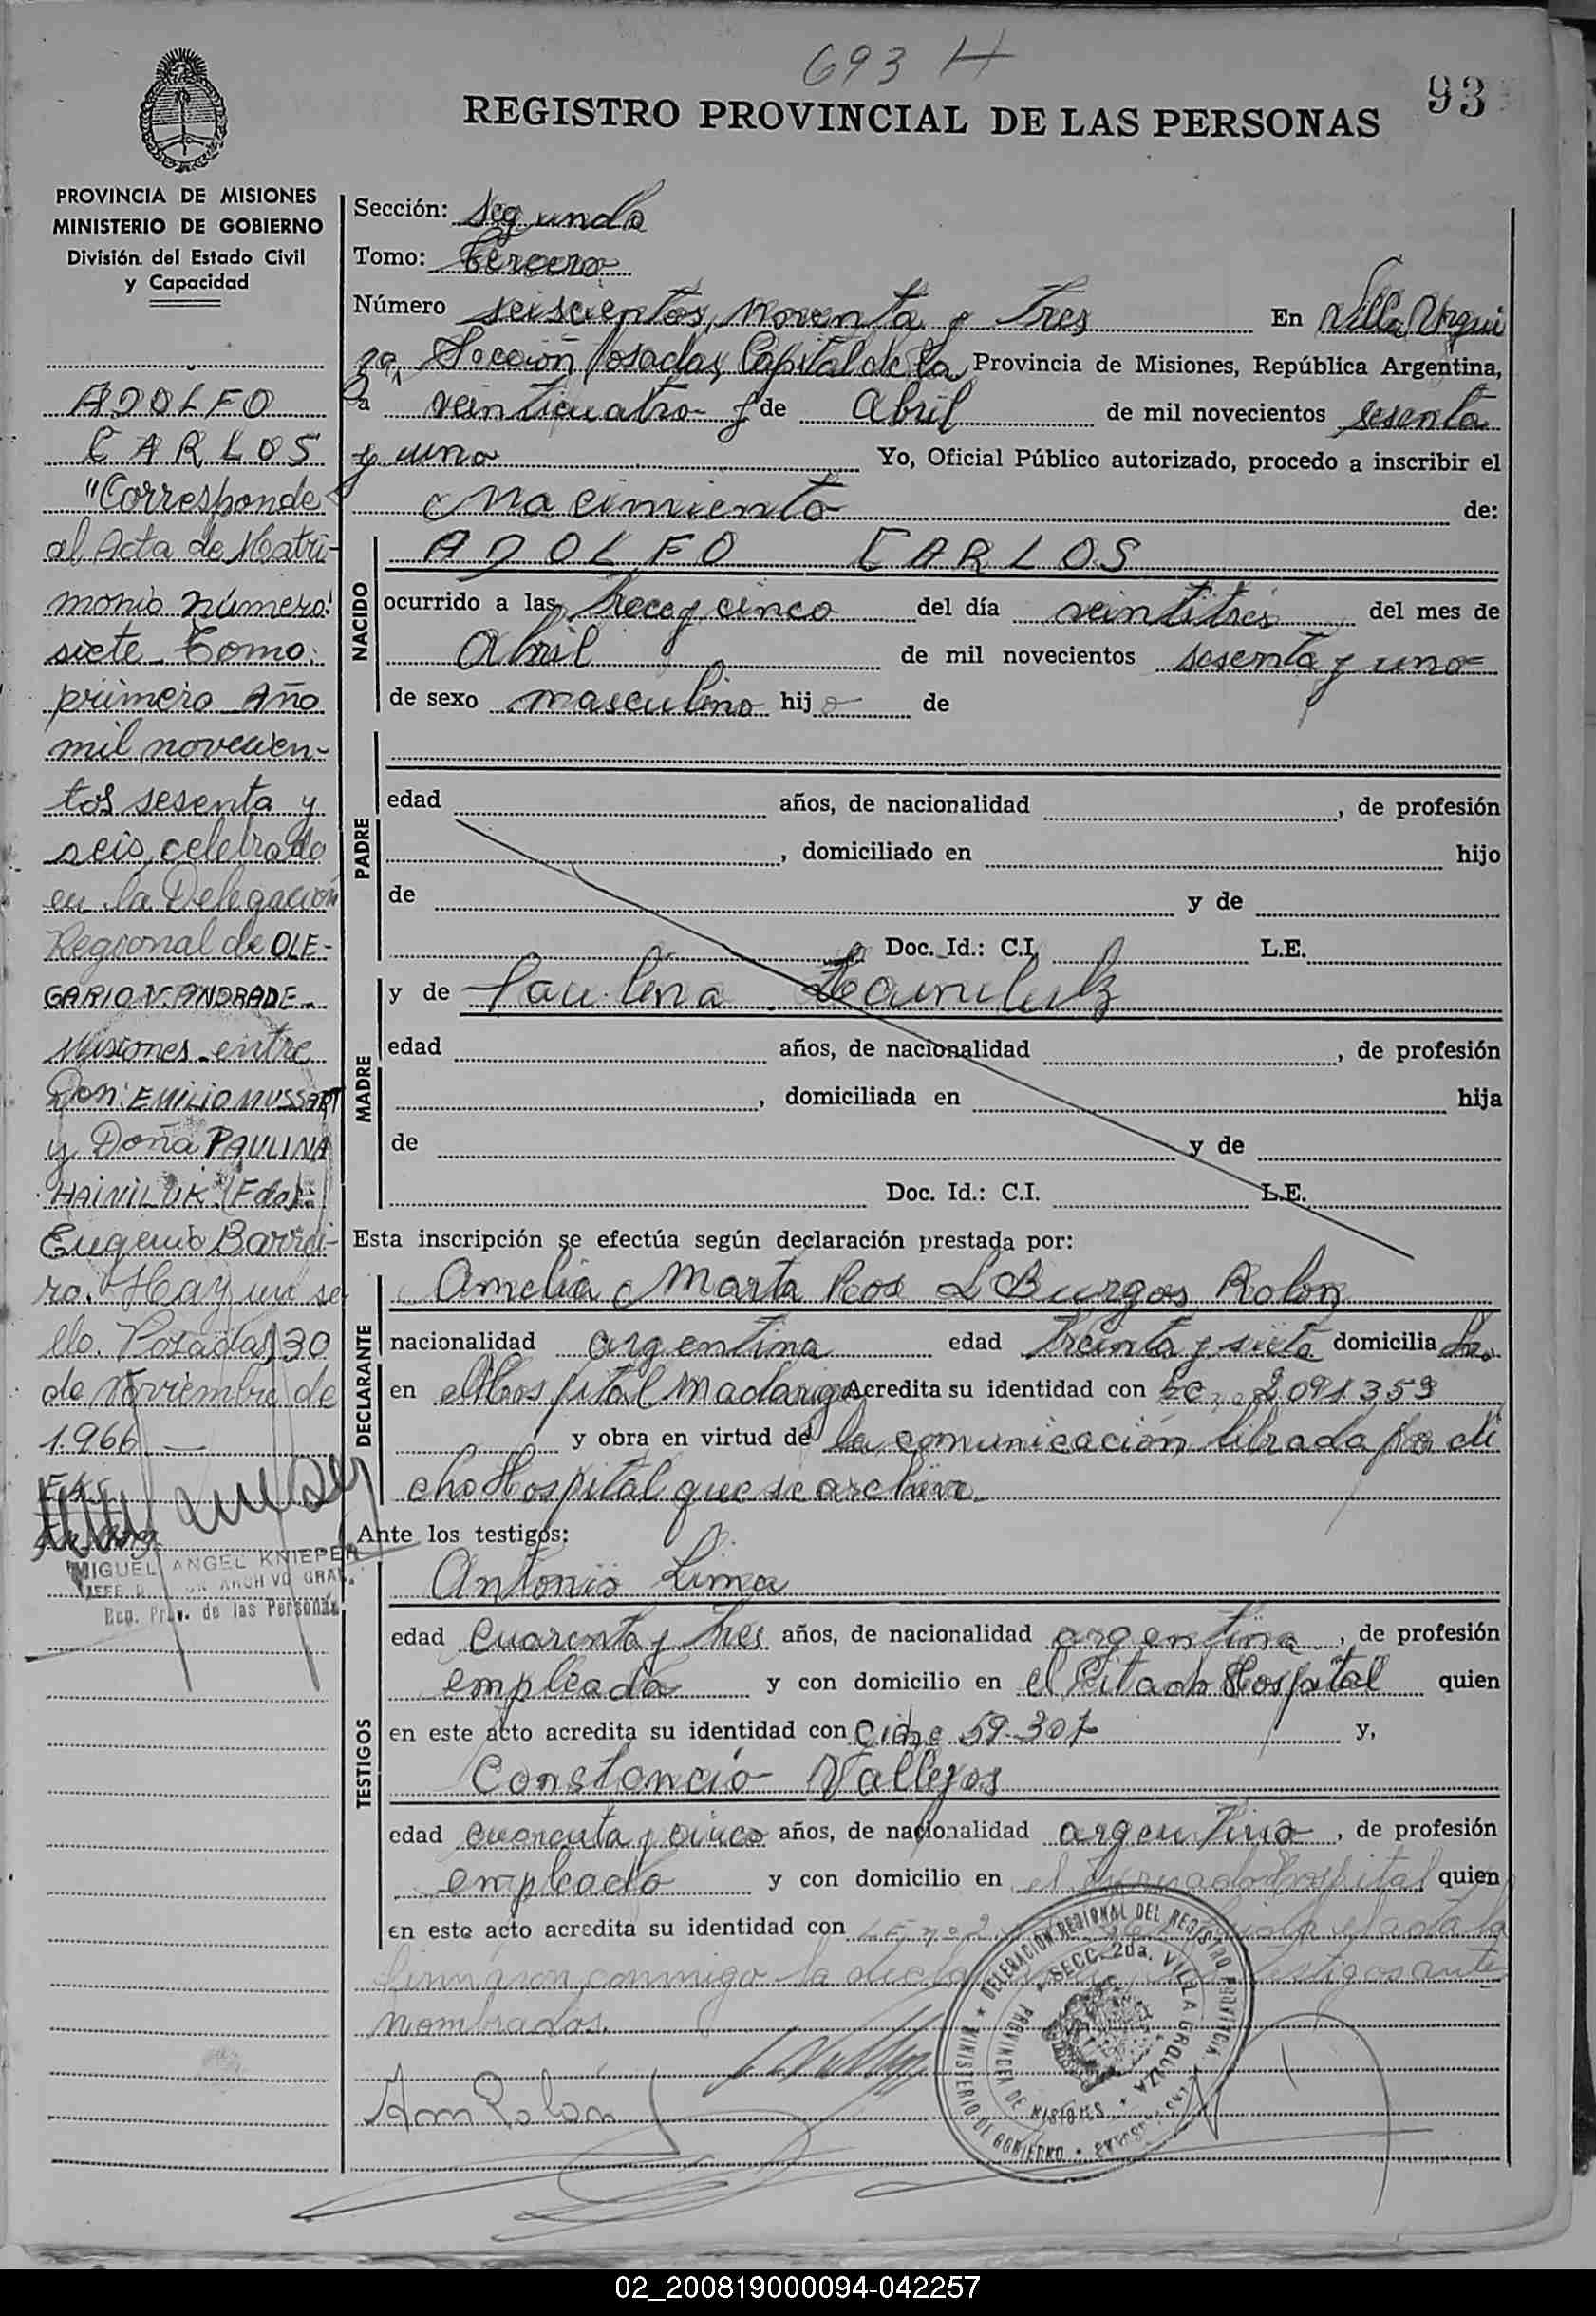 693 H
93
REGISTRO PROVINCIAL DE LAS PERSONAS
PROVINCIA DE MISIONES
MINISTERIO DE GOBIERNO
División del Estado Civil
y Capacidad
ADOLFO
CARLOS
"Corresponde
al Acta de Matri-
monio número:
siete Tomo:
primero Año
mil novecien-
tos sesenta y
seis, celebrado
en la Delegación
Regional de OLE-
GARIO V. ANDRADE
Misiones entre
Don: EMILIO MUSSART
y Doña PAULINA
HAINILUK. (Fdo):
Eugenio Barrei-
ro. Hay un se
llo. Posadas, 30
de Noviembre de
1.966
MIGUEL ANGEL KNIEPER
JEFE ARCHIVO GRAL.
Reg. Prov. de las Personas
Sección: Segunda
Tomo: Tercero
Número seiscientos, noventa y Tres En Villa Urqui
za, Sección Posadas, Capital de la Provincia de Misiones, República Argentina,
a veinticuatro de Abril de mil novecientos sesenta
y uno Yo, Oficial Público autorizado, procedo a inscribir el
Nacimiento de:
NACIDO
ADOLFO CARLOS
ocurrido a las trece y cinco del día veintitrés del mes de
Abril de mil novecientos sesenta y uno
de sexo masculino hijo de
PADRE
edad años, de nacionalidad , de profesión
, domiciliado en hijo
de y de
Doc. Id.: C.I. L.E.
MADRE
y de Paulina
edad años, de nacionalidad , de profesión
, domiciliada en hija
de y de
Doc. Id.: C.I. L.E.
Esta inscripción se efectúa según declaración prestada por:
DECLARANTE
Amelia Marta Ros Burgos Rolon
nacionalidad argentina edad treinta y siete domicilia da
en el Hospital Madariaga Acredita su identidad con 2091353
y obra en virtud de la comunicación librada por di
cho Hospital que se archiva.
Ante los testigos:
TESTIGOS
Antonio Lima
edad Cuarenta y tres años, de nacionalidad argentina, de profesión
empleado y con domicilio en el Citado Hospital quien
en este acto acredita su identidad con 59.307 y,
Constancio Vallejos
edad cuarenta y cinco años, de nacionalidad argentino, de profesión
empleado y con domicilio en el Hospital quien
en este acto acredita su identidad con L.E. nº 2 Leida el acta la
firmaron conmigo la testigos ante
nombrados.
DELEGACION REGIONAL DEL REGISTRO PROVINCIAL DE LAS PERSONAS
MINISTERIO DE GOBIERNO
SECC. 2da. VILLA URQUIZA
PROVINCIA DE MISIONES
Am Rolón
02_200819000094-042257